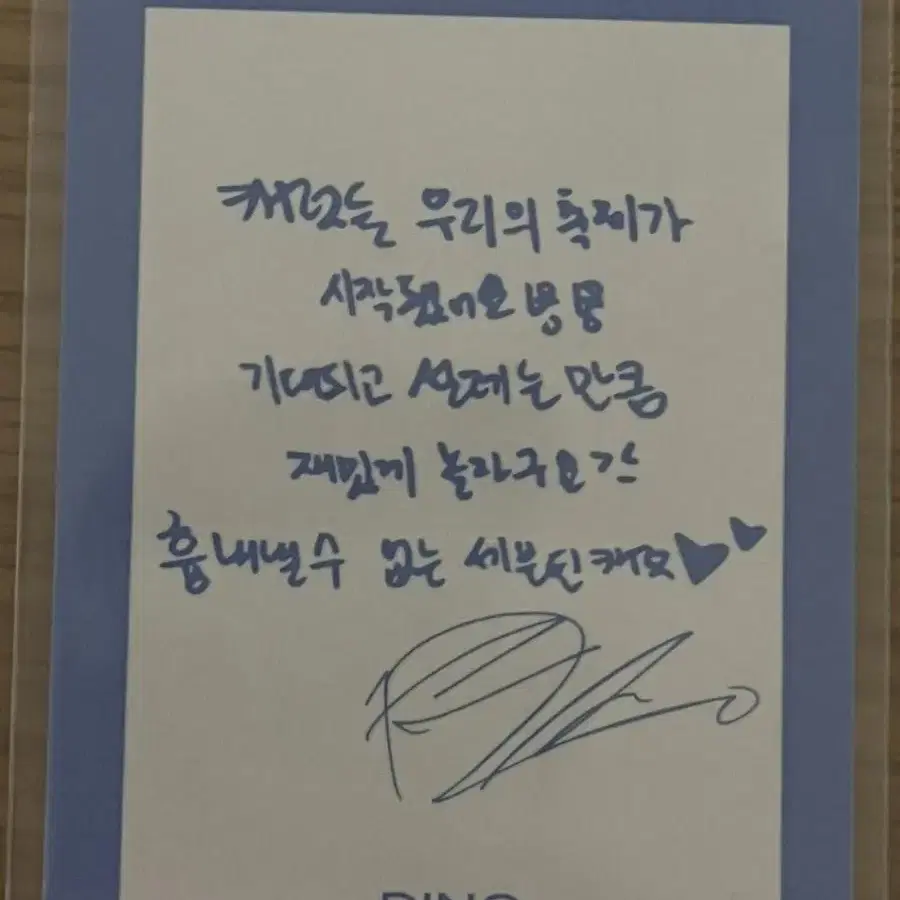 캐럿들 우리의 축제가
시작됐어요
기대되고 설레는 만큼
재밌게 놀자구요
흉내낼 수 없는 세븐틴 캐럿
DINO